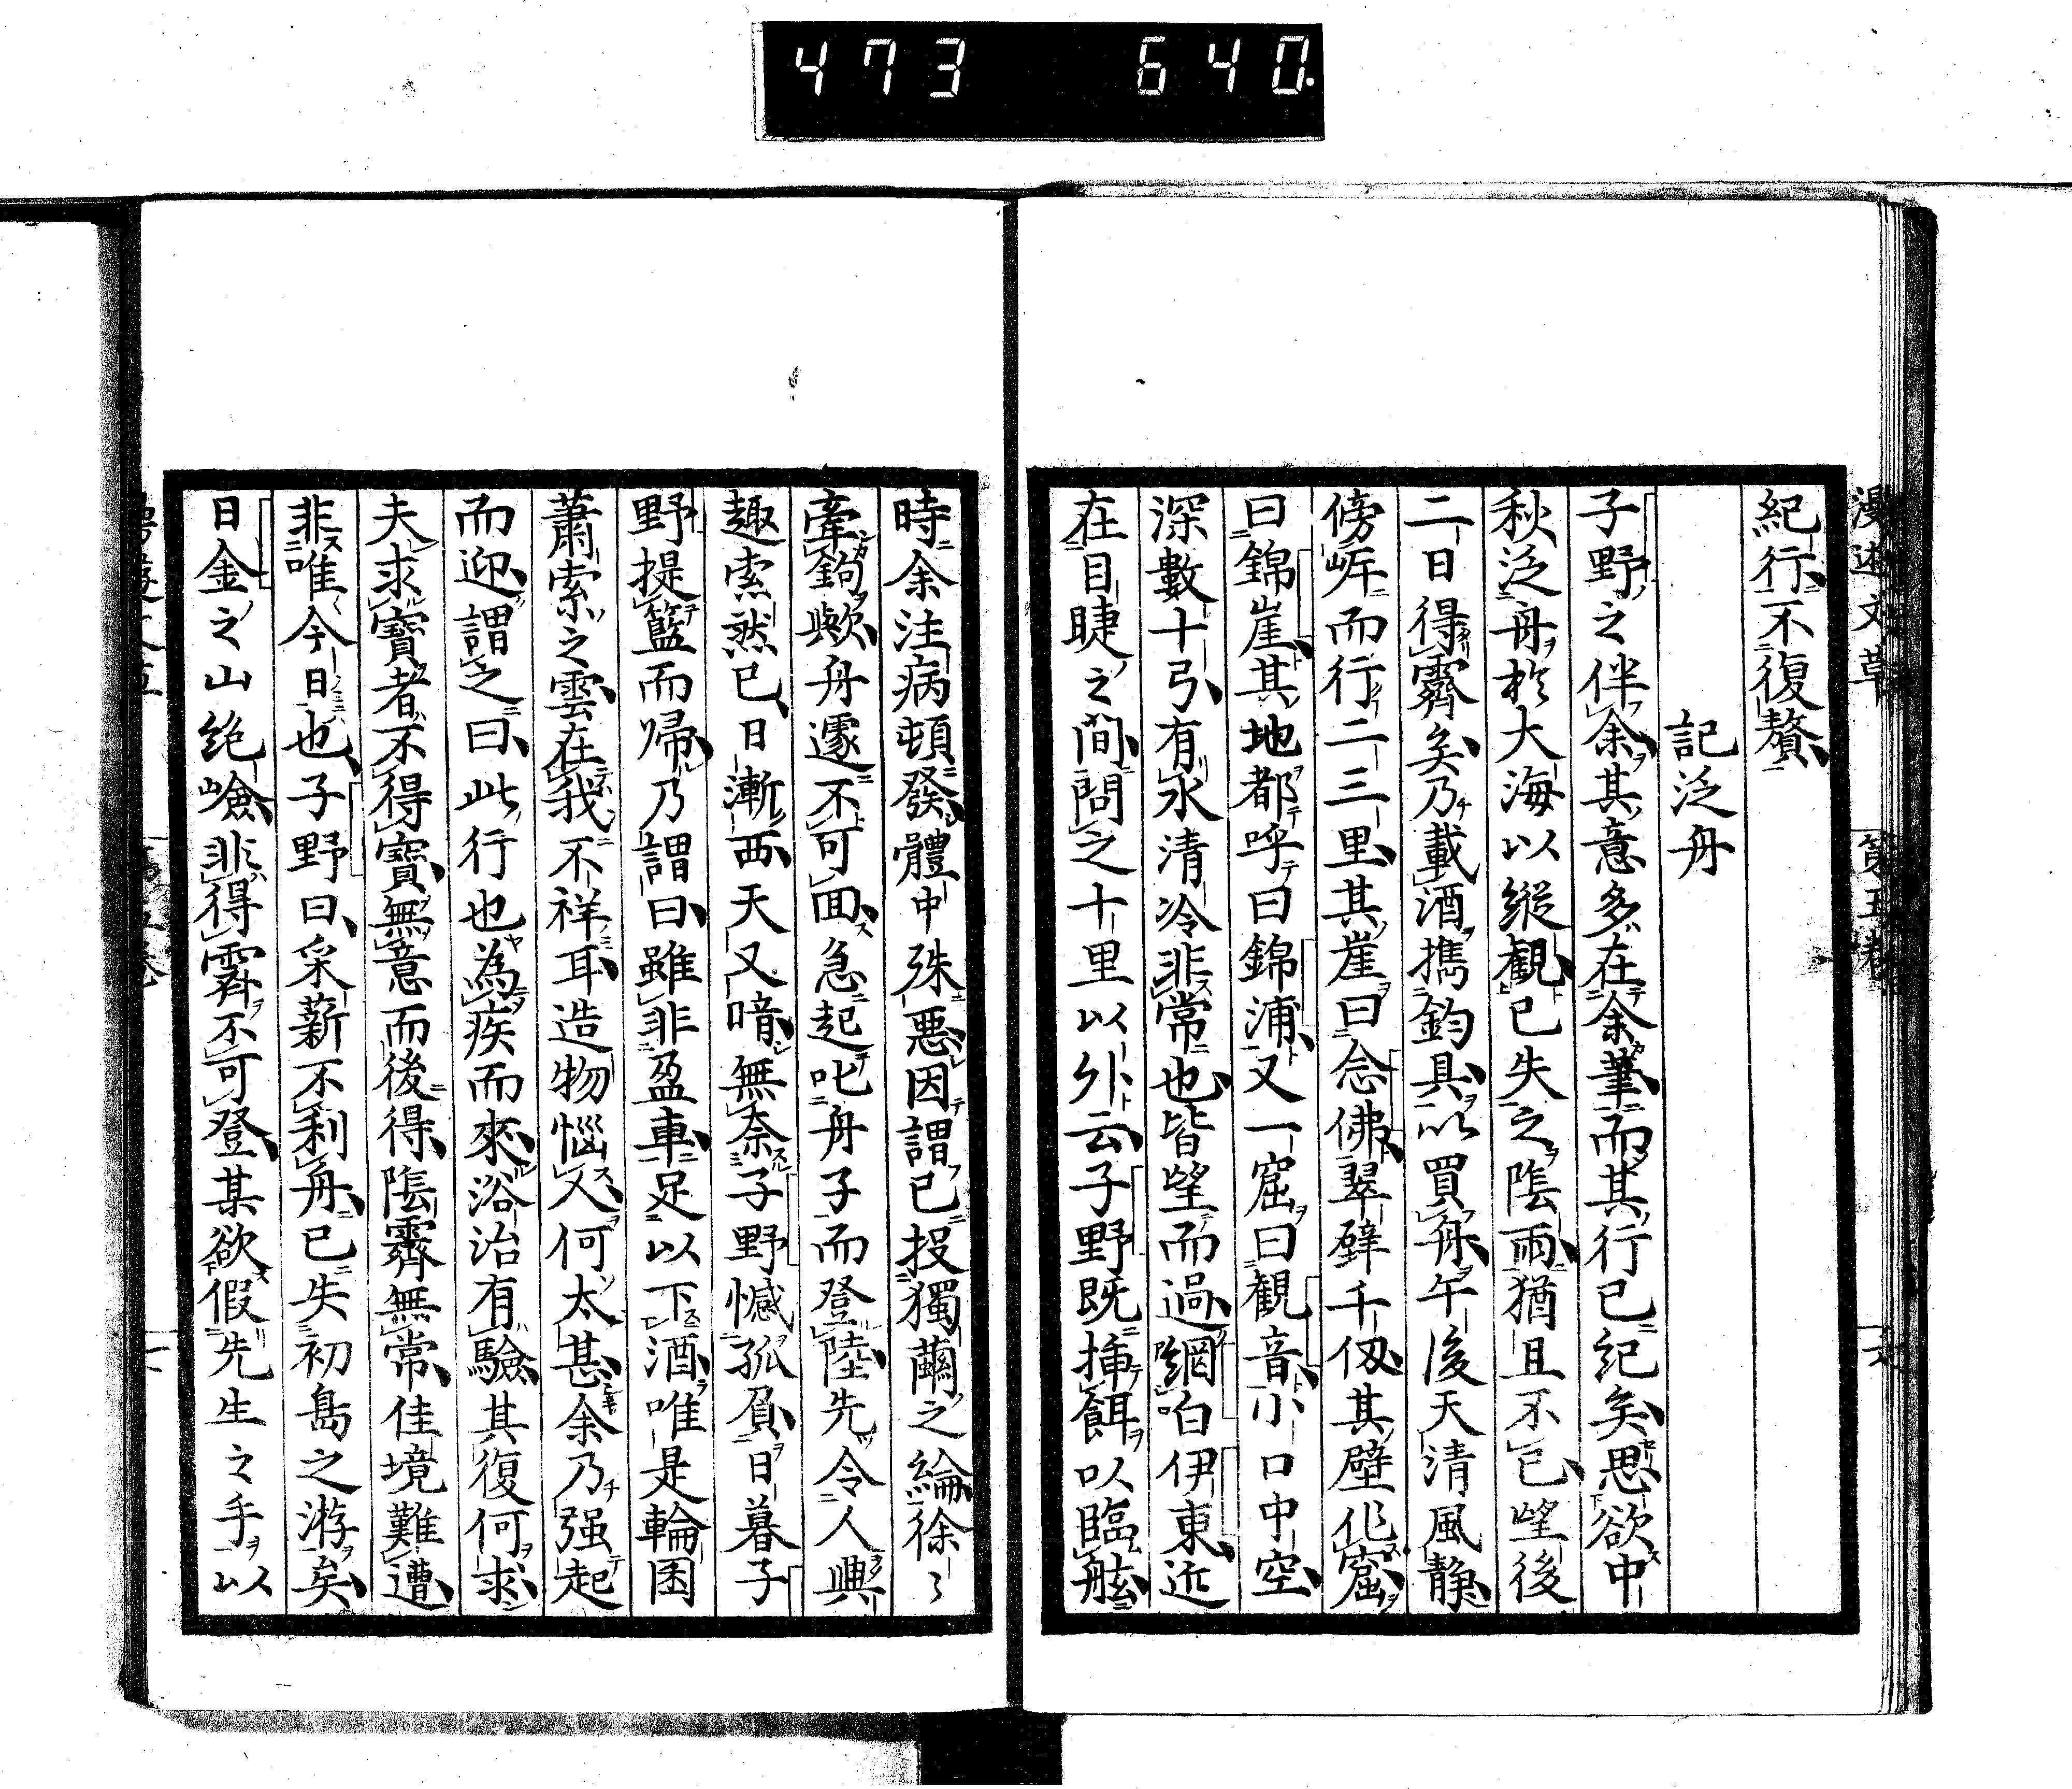 473 640
漫遊文草 第五卷
紀行不復贅
記泛舟
子野之伴余其意多在余筆而其行已紀矣思欲中
秋泛舟於大海以縱觀已失之陰雨猶且不已望後
二日得霽矣乃載酒攜鈞具以買舟午後天清風靜
傍岸而行二三里其崖曰念佛翠壁千仭其壁作窟
曰錦崖其地都呼曰錦浦又一窟曰觀音小口中空
深數十引有水清冷非常也皆望而過網咱伊東近
在目睫之間問之十里以外云子野既揷餌以臨舷
時余注病頓發體中殊惡因謂已投獨繭之綸徐々
牽鉤歟舟遽不可回急起叱舟子而登陸先令人輿
趣索然已日漸西天又暗無奈子野憾孤負日暮子
野提籃而歸乃謂曰雖非盈車足以下酒唯是輪囷
蕭索之雲在我不祥耳造物惱人何太甚余乃强起
而迎謂之曰此行也為疾而來浴治有驗其復何求
夫求寶者不得寶無意而後得陰霽無常佳境難遭
非唯今日也子野曰采薪不利舟已失初島之游矣
日金之山絶嶮非得霽不可登某欲假先生之手以